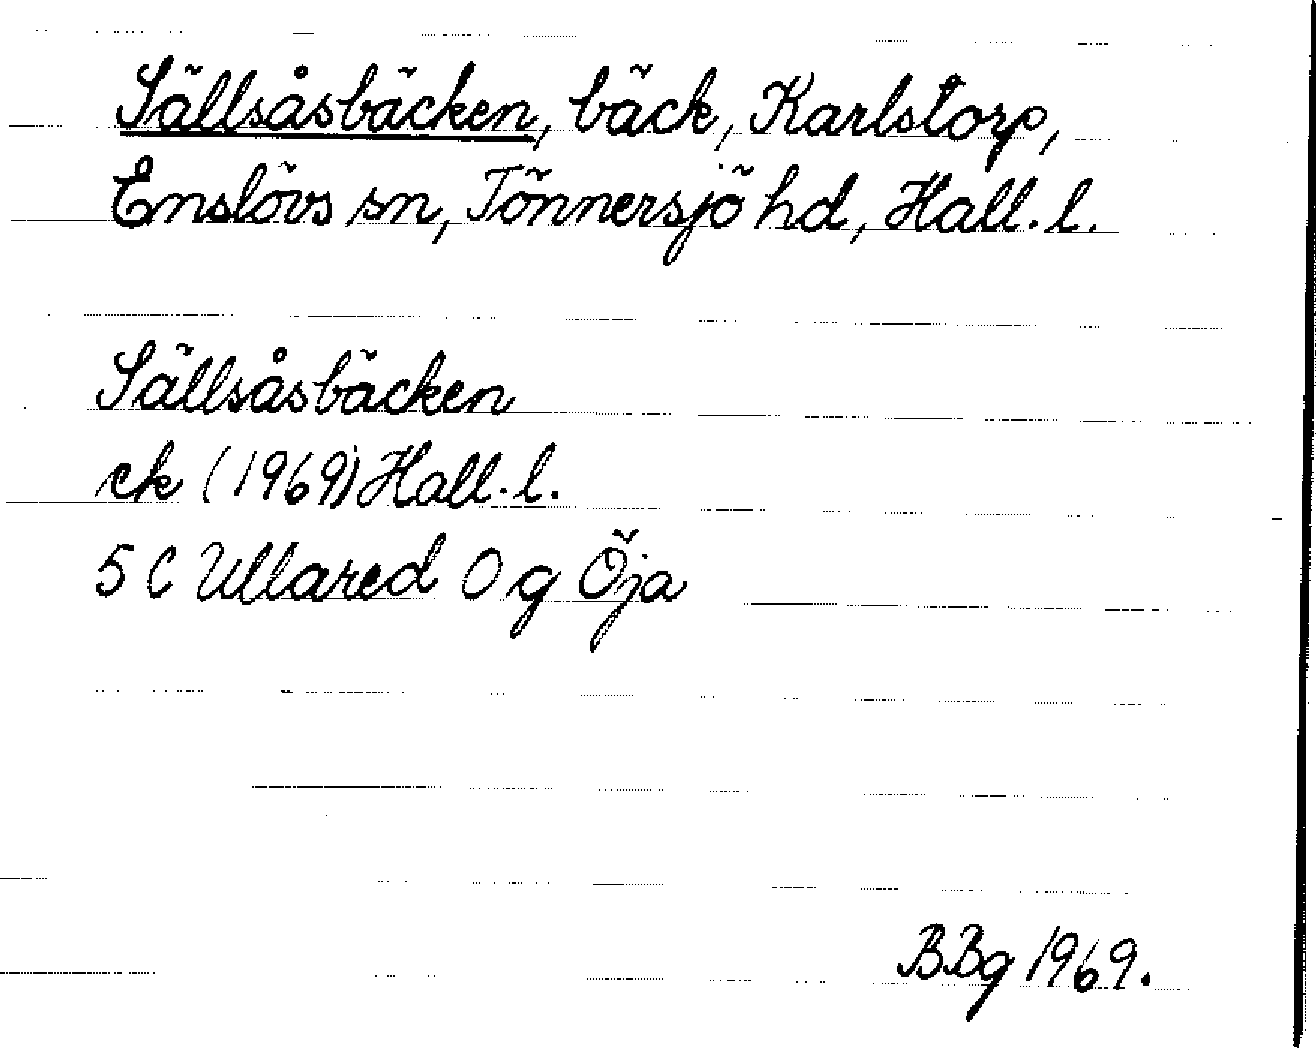 Sällsåsbäcken, bäck, Karlstorp,
Enslövs sn, Tönnersjö hd, Hall. l.
Sällsåsbäcken
ek (1969) Hall. l.
5 C Ullared O g Öja
BBg 1969.